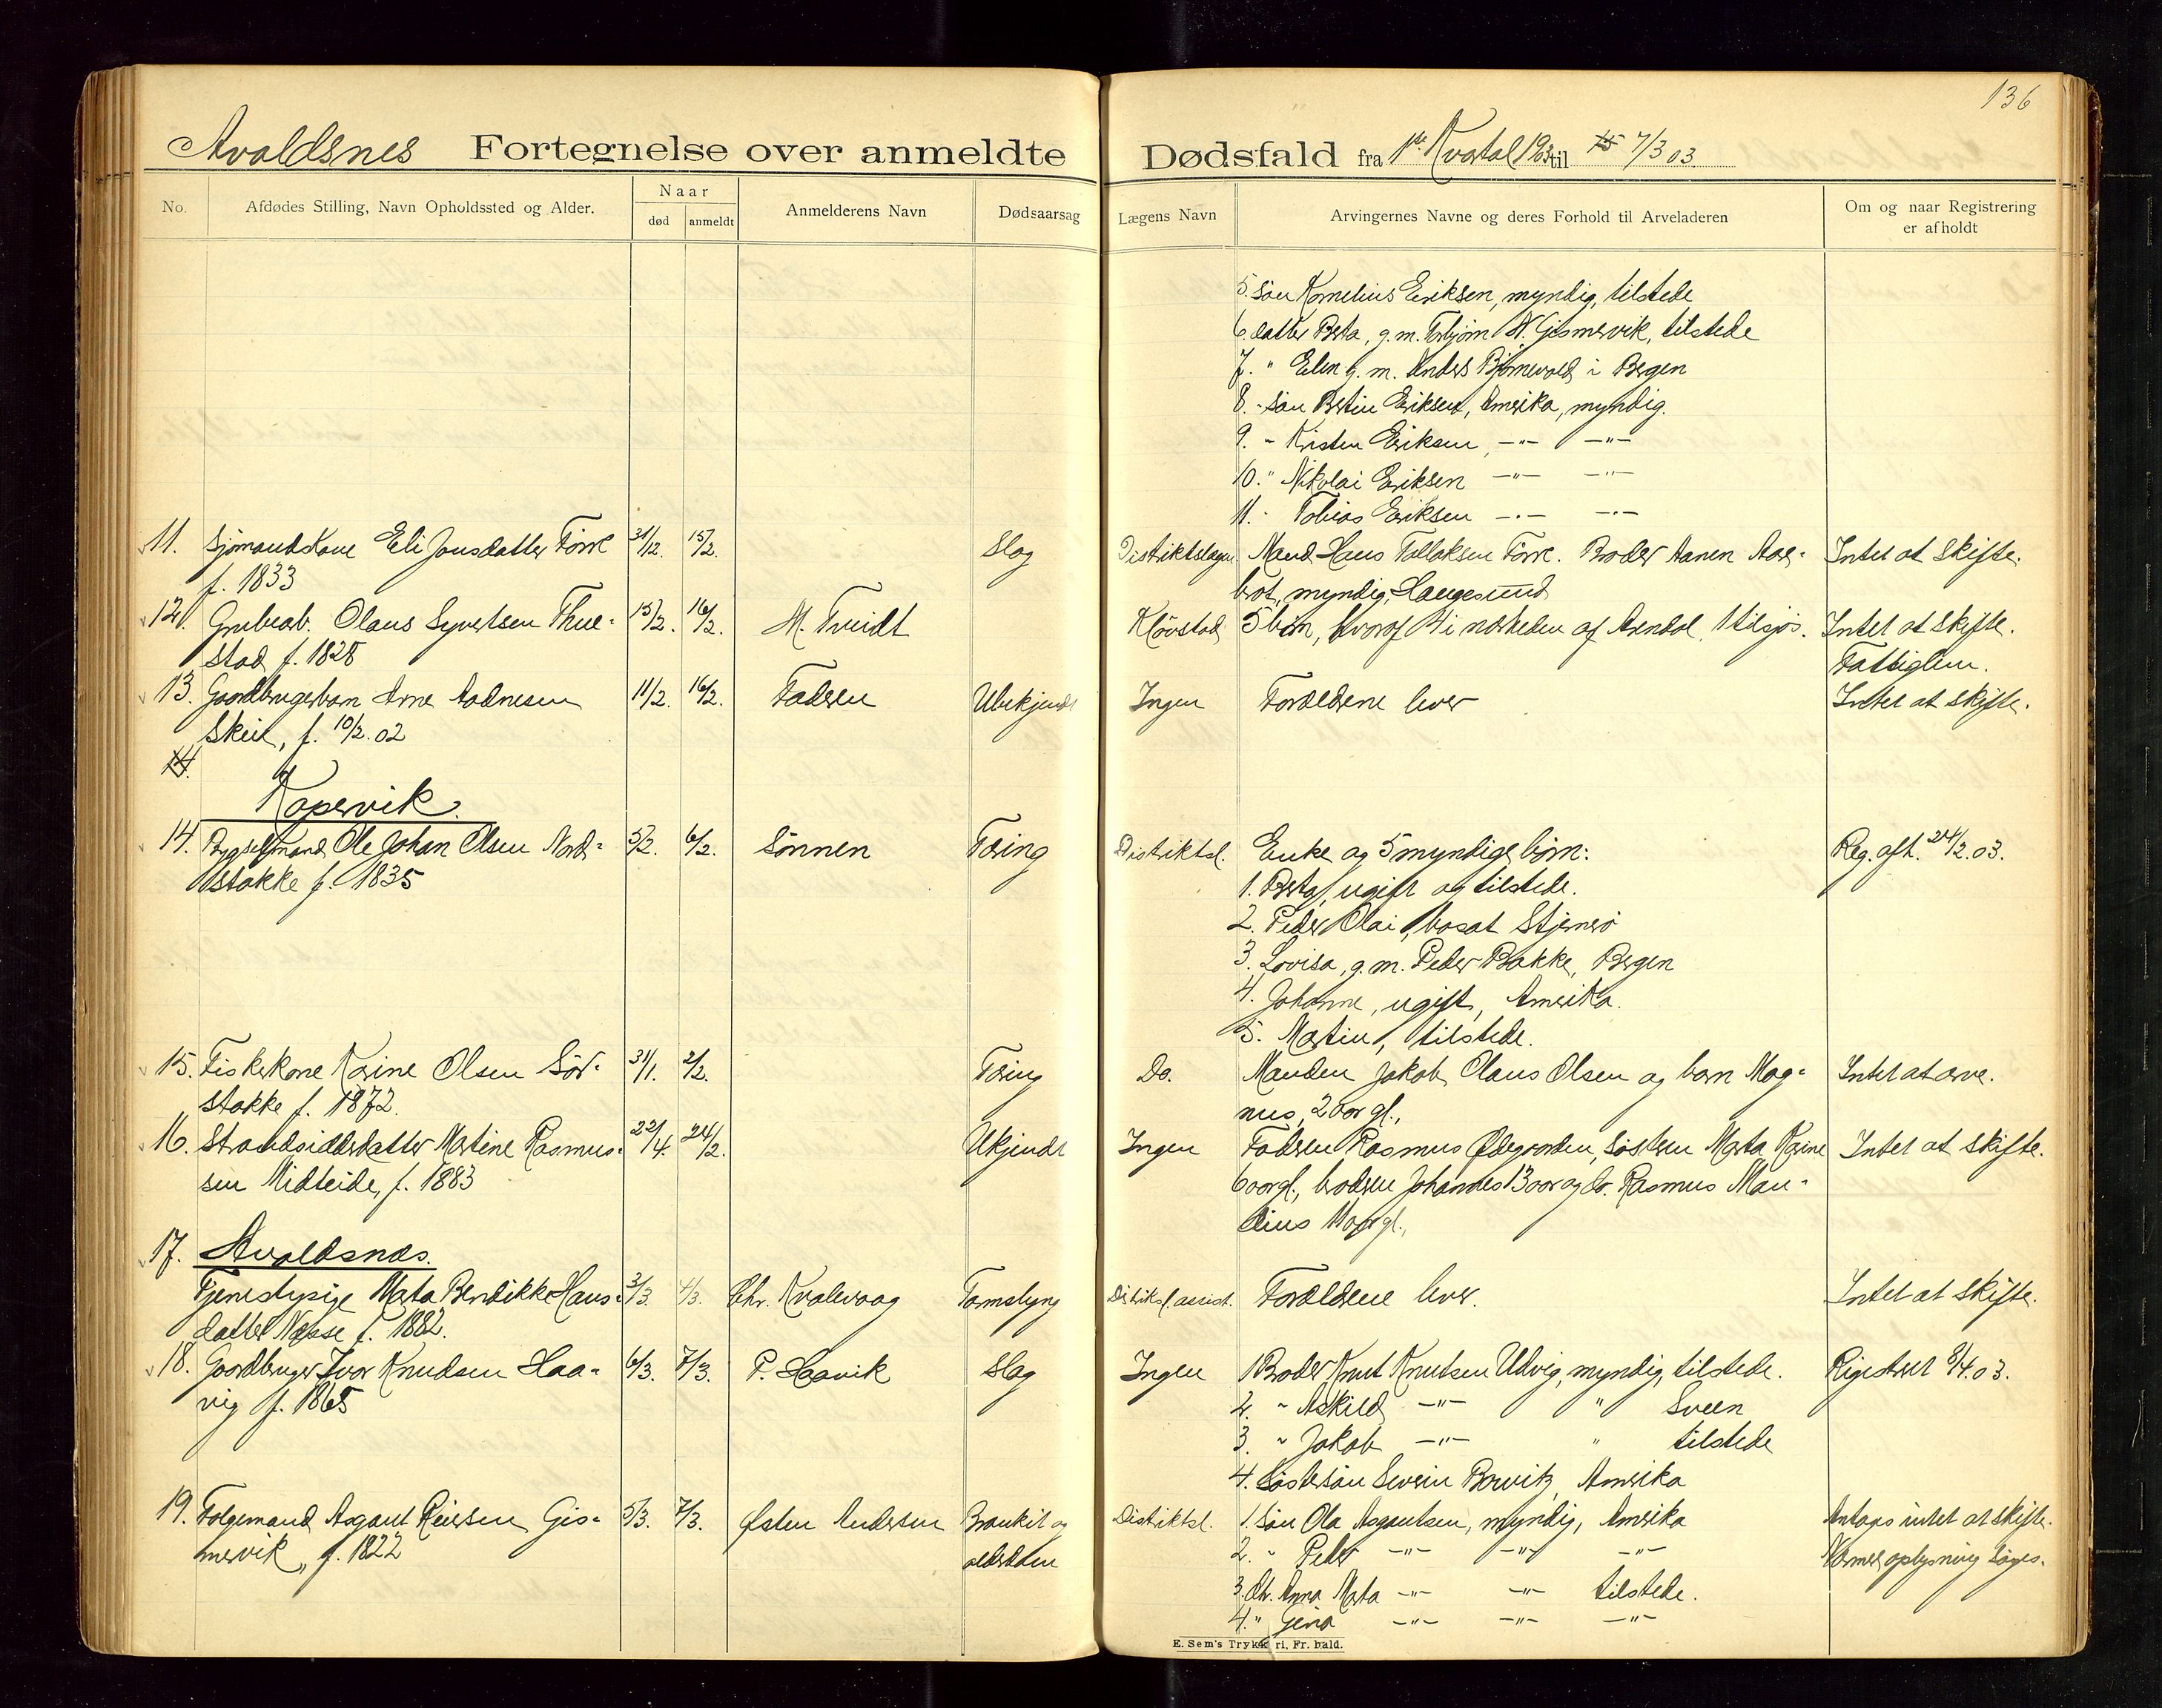 136
Avaldsnes Fortegnelse over anmeldte Dødsfald fra 1ste Kvartal 1903 til 7/3 03.
No. Afdødes Stilling, Navn Opholdssted og Alder. Naar død anmeldt Anmelderens Navn Dødsaarsag Lægens Navn Arvingernes Navne og deres Forhold til Arveladeren Om og naar Registrering er afholdt
5. søn Kornelius Eriksen, myndig, tilstede
6. datter Berta, g. m. Torbjørn N. Gismervik, tilstede
7. " Elen g. m. Anders Bjørnevold i Bergen
8. - søn Bertin Eriksen, Amerika, myndig.
9. " Kristen Eriksen, -"- -"-
10. " Nikolai Eriksen -"- -"-
11. " Tobias Eriksen -"- -"-
11. Sjømandskone Eli Jonsdatter Førre 31/12. 15/2. Slag Distriktslægen Mand Hans Tollaksen Førre. Broder Aanen Aare- Intet at skifte.
f. 1833 brot, myndig, Haugesund
12. Grubearb. Olaus Syvertsen Thue- 15/2. 16/2. M. Tveidt Kløvstad 5 børn, hvoraf 4 i nærheden af Arendal, 1 tilsjøs. Intet at skifte.
stad f. 1828 Fattiglem.
13. Gaardbrugerbarn Arne Aadnesen 11/2. 16/2. Faderen Ubekjendt Ingen Forældrene lever Intet at skifte.
Skeie, f. 10/2. 02
14.
Kopervik.
14. Bygselmand Ole Johan Olsen Nord- 5/2. 6/2. Sønnen Tæring Distriktsl. Enke og 5 myndige børn: Reg. afh. 24/2. 03.
stokke f. 1835 1. Berta, ugift og tilstede.
2. Peder Olai, bosat Stjernerø
3. Lovisa, g. m. Peder Bakke, Bergen
4. Johanne, ugift, Amerika.
5. Martin, tilstede.
15. Fiskerkone Karine Olsen Sør- 31/1. 2/2. Tæring Do. Manden Jakob Olaus Olsen og barn Mag- Intet at arve.
stokke f. 1872. nus, 2 aar gl.,
16. Strandsidderdatter Martine Rasmus- 22/4. 24/2. Ukjendt Ingen Faderen Rasmus Ødegaarden, søsteren Marta Karine Intet at skifte.
sen Midteide, f. 1883 6 aar gl., broderen Johannes 13 aar og do. Rasmus Man-
dius 11 aar gl.,
17. Avaldsnæs.
Tjenestepige Marta Bendikke Hans- 3/3. 4/3. Chr. Kvalevaag Distriktsl. assist. Forældrene lever. Intet at skifte.
datter Næsse f. 1882.
18. Gaardbruger Ivar Knudsen Haa- 6/3. 7/3. P. Haavik Slag Ingen 1 Broder Knut Knutsen Utvig, myndig, tilstede. Registrert 8/4. 03.
vig f. 1865 2. " Askild -"- " Sveen
3. " Jakob -"- " tilstede
4. Søstersøn Severin Amerika
19. Folgemand Asgaut Reiersen Gis- 5/3. 7/3. Østen Andersen Bronkit og Distriktsl. 1. søn Ola Asgautsen, myndig, Amerika Antages intet at skifte.
mervik, f. 1822 alderdom 2. " Peder -"- -"- -"- Nærmere oplysning søges.
3. dtr. Anna Marta -"- -"- tilstede.
4. " Gina -"- -"- -"-
E. Sem's Trykkeri, Fr. hald.